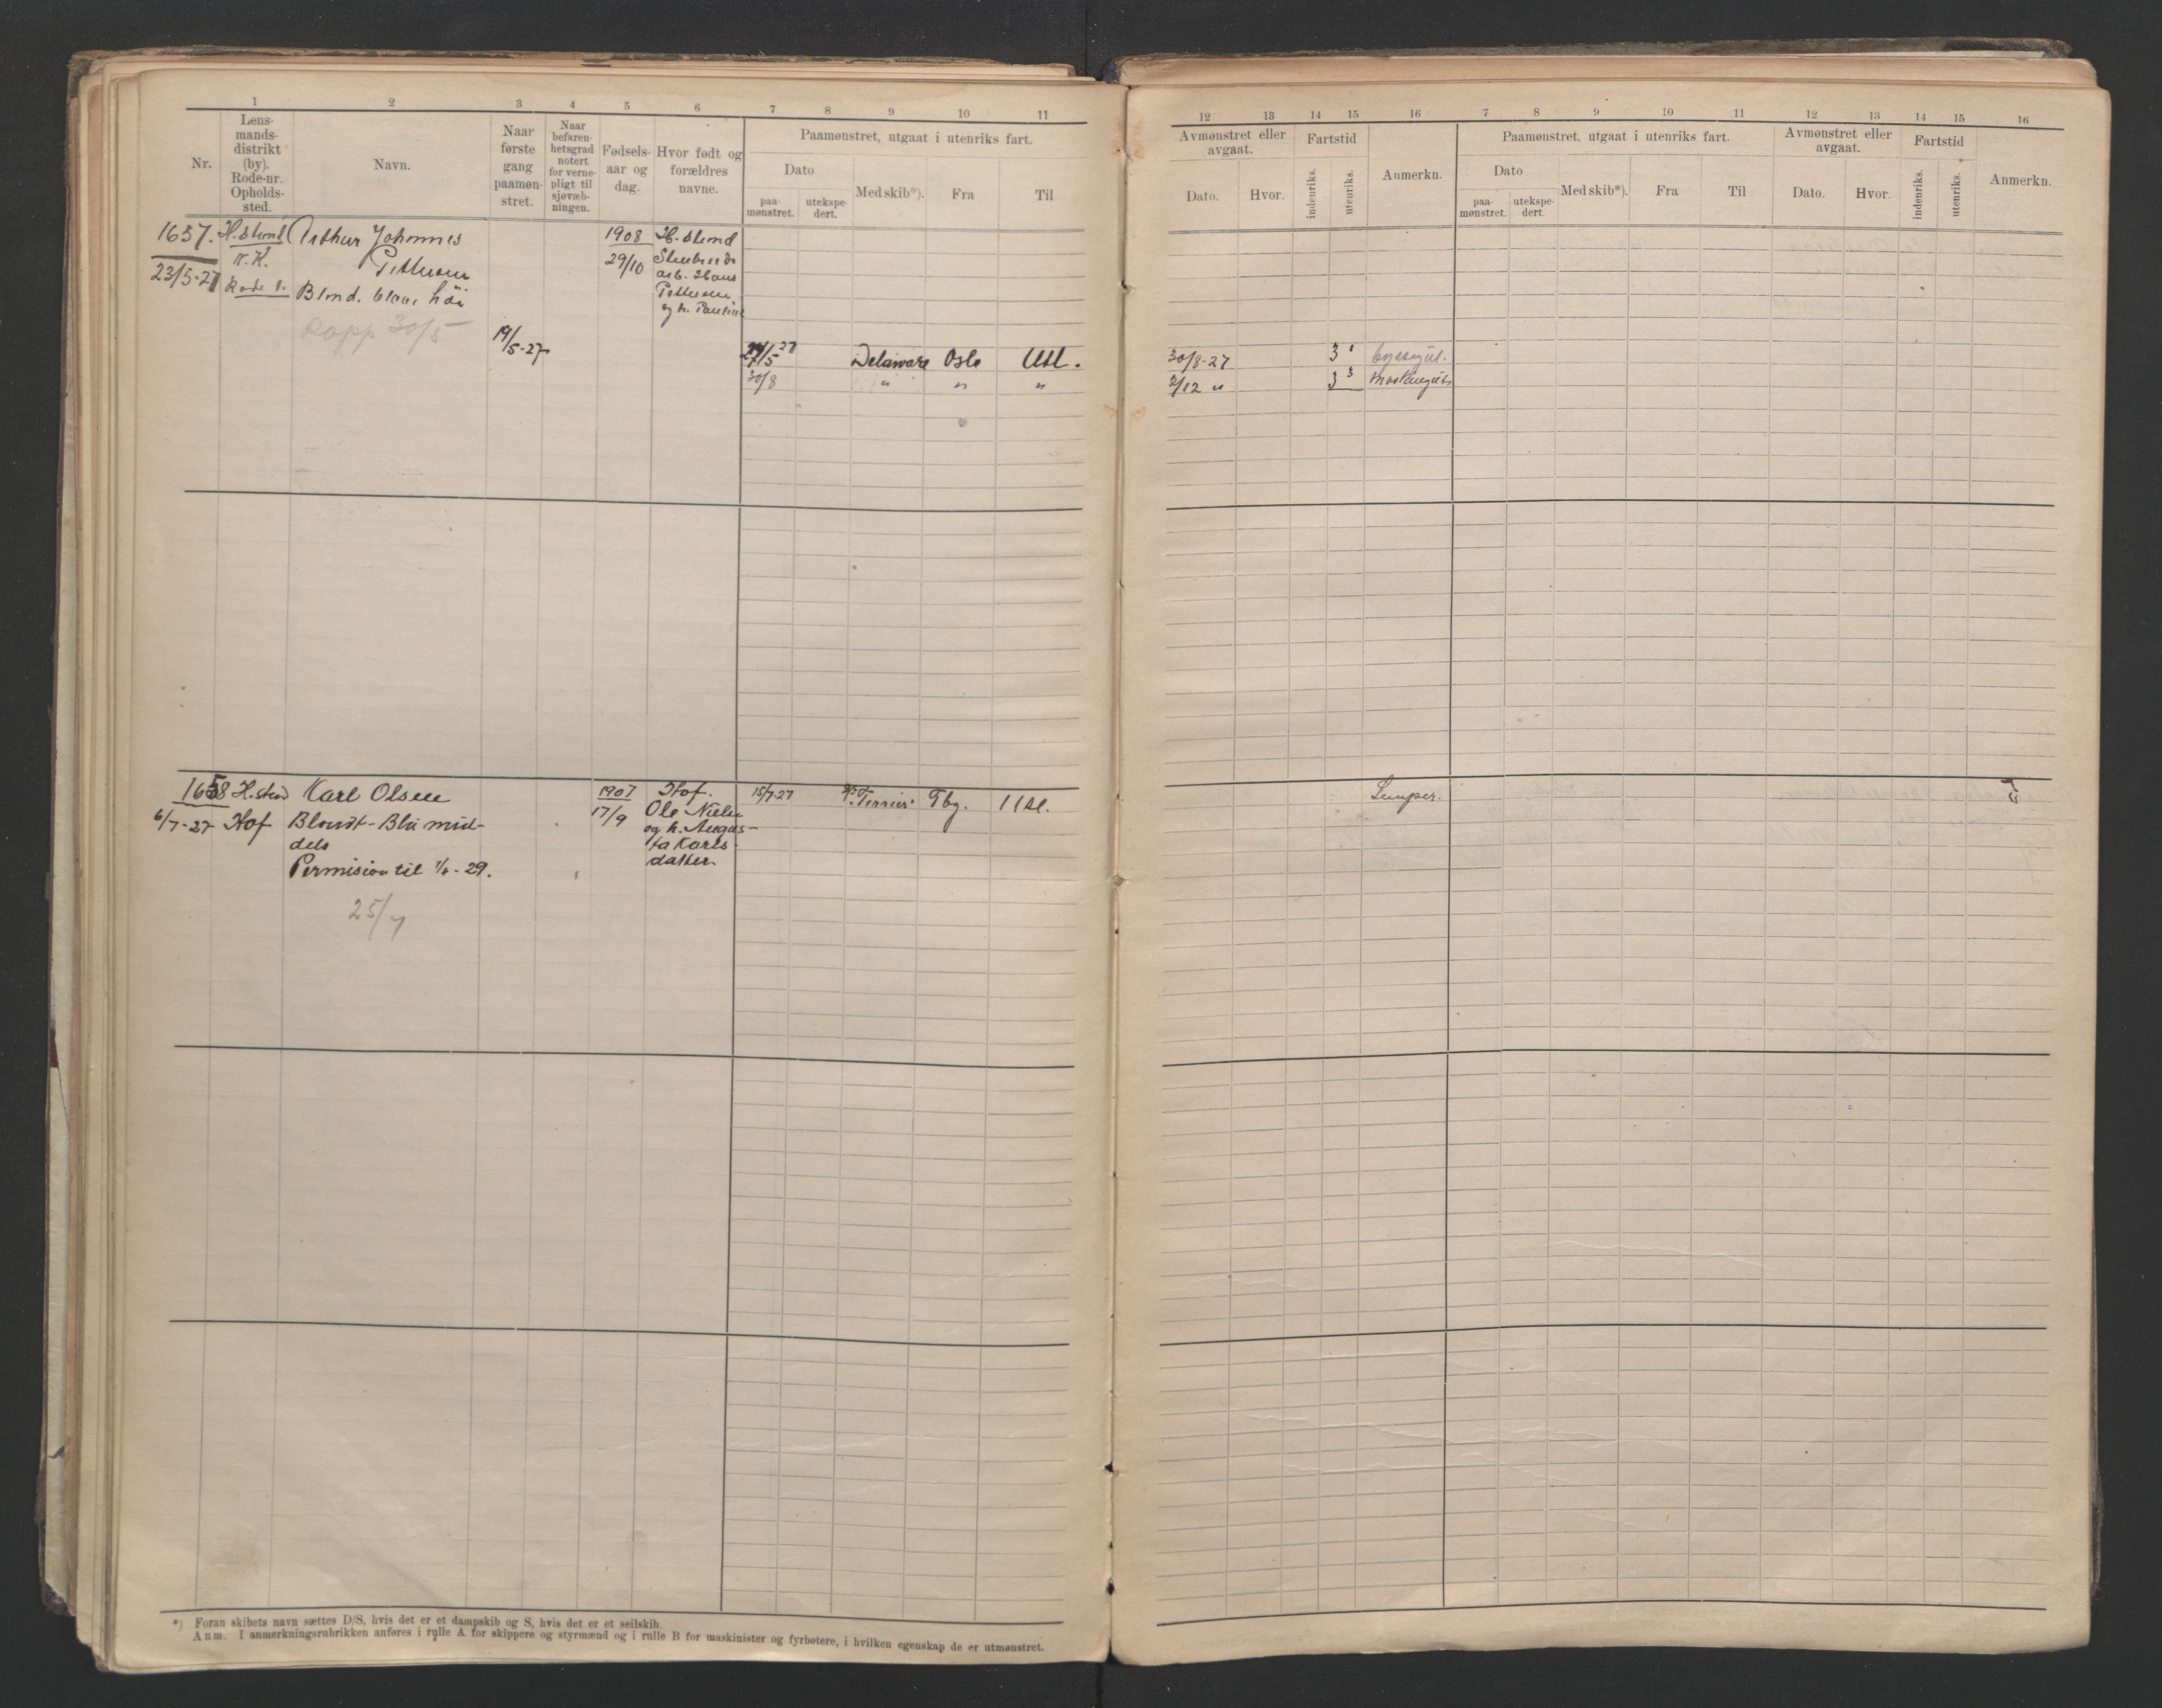 1 2 3 4 5 6 7 8 9 10 11
Nr.
Lens-
mands-
distrikt
(by).
Rode-nr.
Opholds-
sted.
Navn.
Naar
første
gang
paamøn-
stret.
Naar
befaren-
hetsgrad
notert
for verne-
pligt til
sjøvæb-
ningen.
Fødsels-
aar og
dag.
Hvor født og
forældres
navne.
Paamønstret, utgaat i utenriks fart.
Dato
paa-
mønstret.
utekspe-
dert.
Med skib*).
Fra
Til
1657. Arthur Johannes 1908
Pettersen 29/10
23/5-27
Blond. blaae höi
Pettersen
og h. Pauline
30/5
19/5-27
Delaware Oslo Utl.
30/8 " " "
1658 H.sted Karl Olsen 1907 Hof. 15/7-27 "Terrier" Tbg. Utl.
6/7-27 Hof Blondt-Blå mid- 17/9 Ole Nielsen
dels og h. Augus-
ta Karls
Permision til 1/6-29. datter.
25/7
*) Foran skibets navn sættes D/S, hvis det er et dampskib og S, hvis det er et seilskib.
Anm. I anmerkningsrubrikken anføres i rulle A for skippere og styrmænd og i rulle B for maskinister og fyrbøtere, i hvilken egenskap de er utmønstret.
12 13 14 15 16 7 8 9 10 11 12 13 14 15 16
Avmønstret eller
avgaat.
Dato.
Hvor.
Fartstid
indenriks.
utenriks.
Anmerkn.
Paamønstret, utgaat i utenriks fart.
Dato
paa-
mønstret.
utekspe-
dert.
Med skib*).
Fra
Til
Avmønstret eller
avgaat.
Dato.
Hvor.
Fartstid
indenriks.
utenriks.
Anmerkn.
30/8-27 3 1
2/12 " 3 3
Lemper.